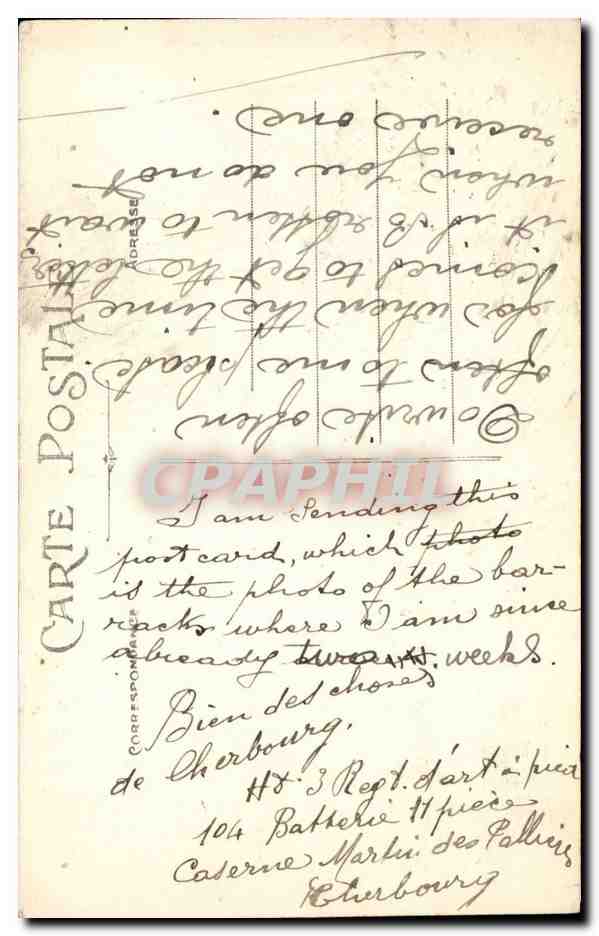 CARTE POSTALE
CORRESPONDANCE
ADRESSE
I am sending this
post card, which photo
is the photo of the bar-
racks where I am since
already two weeks.
Bien des choses
de Cherbourg.
3 Regt. d'art à pied
104 Batterie 11 pièce
Caserne Martin des Pallières
Cherbourg
Do write often
often to me please.
for when the time
comes to get the letters
it is so rotten to wait
when you do not
receive one.
CPAPHIL